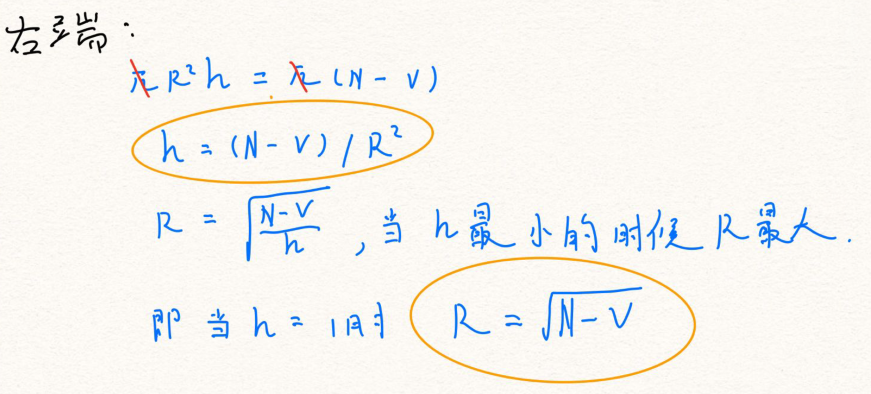 右端:
πR²h = π(N-V)
h = (N-V)/R²
R = √((N-V)/h) ,当h最小的时候R最大.
即当h=1时 R=√(N-V)